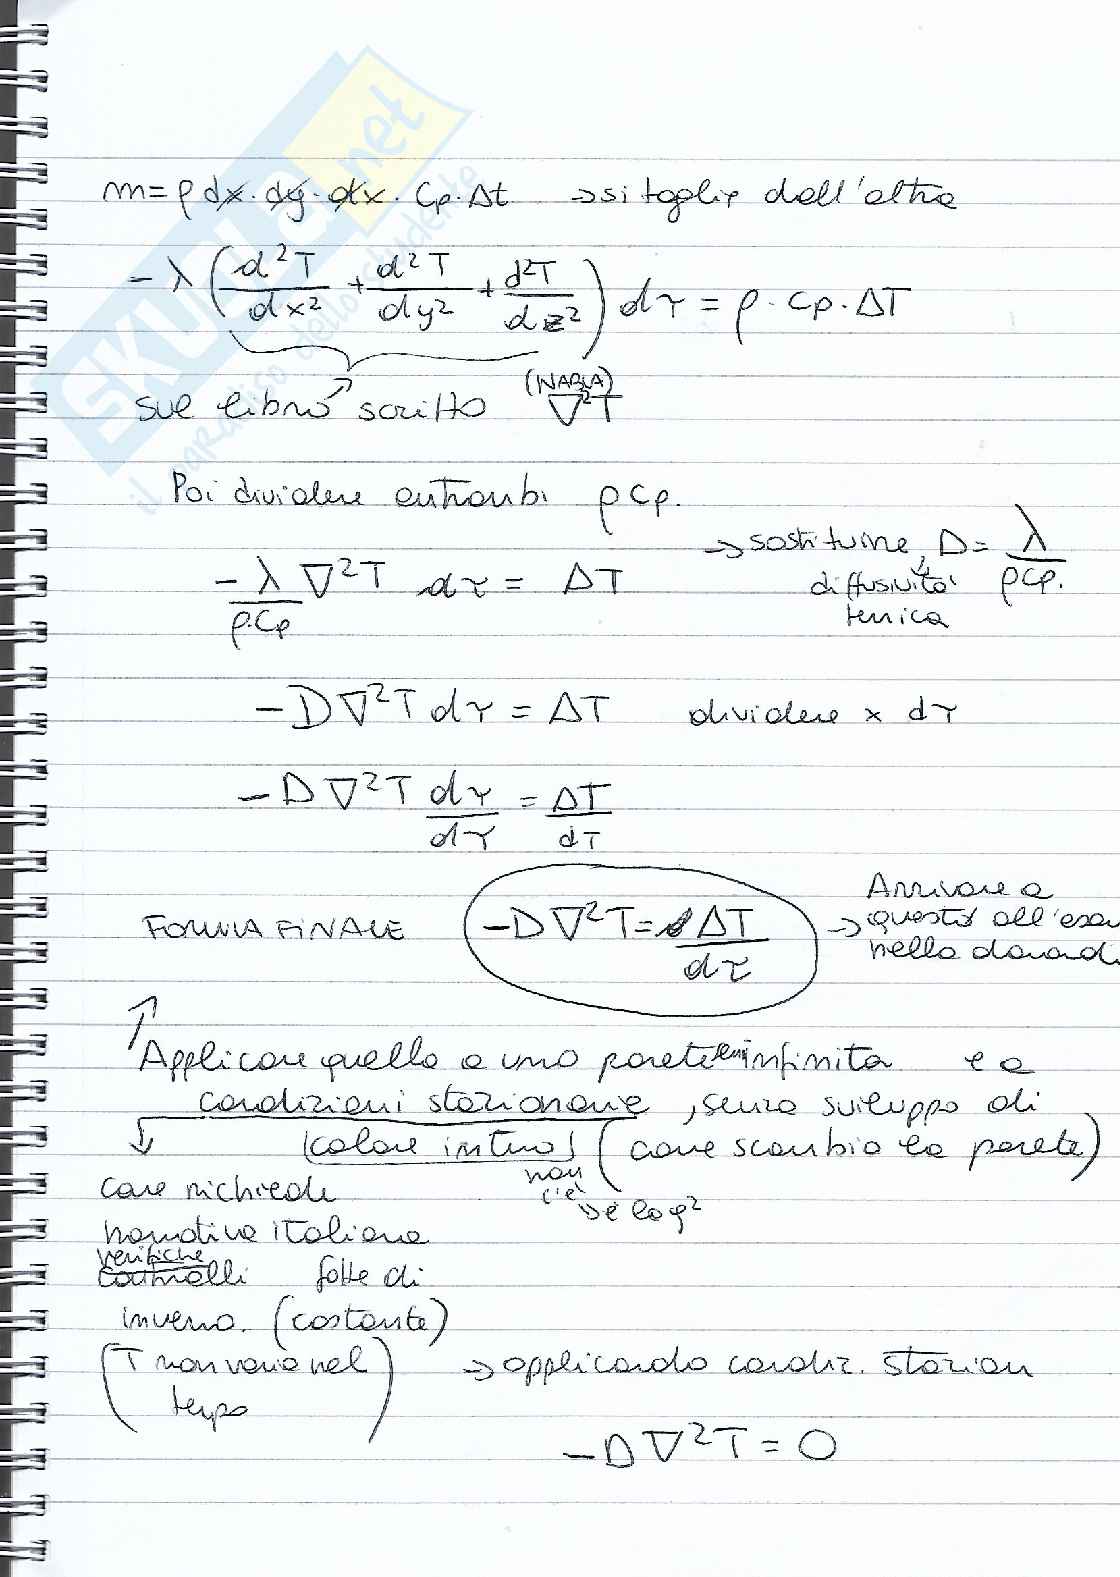 SKUOLA.net
il paradiso dello studente
m = ρ dx · dy · dx · Cp · Δt → si toglie dall'altra
- λ ( d²T/dx² + d²T/dy² + d²T/dz² ) dτ = ρ · Cp · ΔT
(NABLA)
sul libro scritto ∇²T
Poi dividere entrambi ρ Cp.
→ sostituire D = λ/ρCp.
diffusività
termica
- λ/ρ·Cp ∇²T dτ = ΔT
- D ∇²T dτ = ΔT dividere x dτ
- D ∇²T dτ/dτ = ΔT/dτ
FORMULA FINALE - D ∇²T = ΔT/dτ → Arrivare a
questo all'esa
nella domand
↑ Applicare quello a una parete semi infinita e a
condizioni stazionarie, senza sviluppo di
(calore interno) (come scambio la parete)
non
c'è
come richiede
normativa italiana
verifiche
controlli fatte di
inverno. (costante)
(T non varia nel
tempo) → applicando condiz. stazion
- D ∇²T = 0